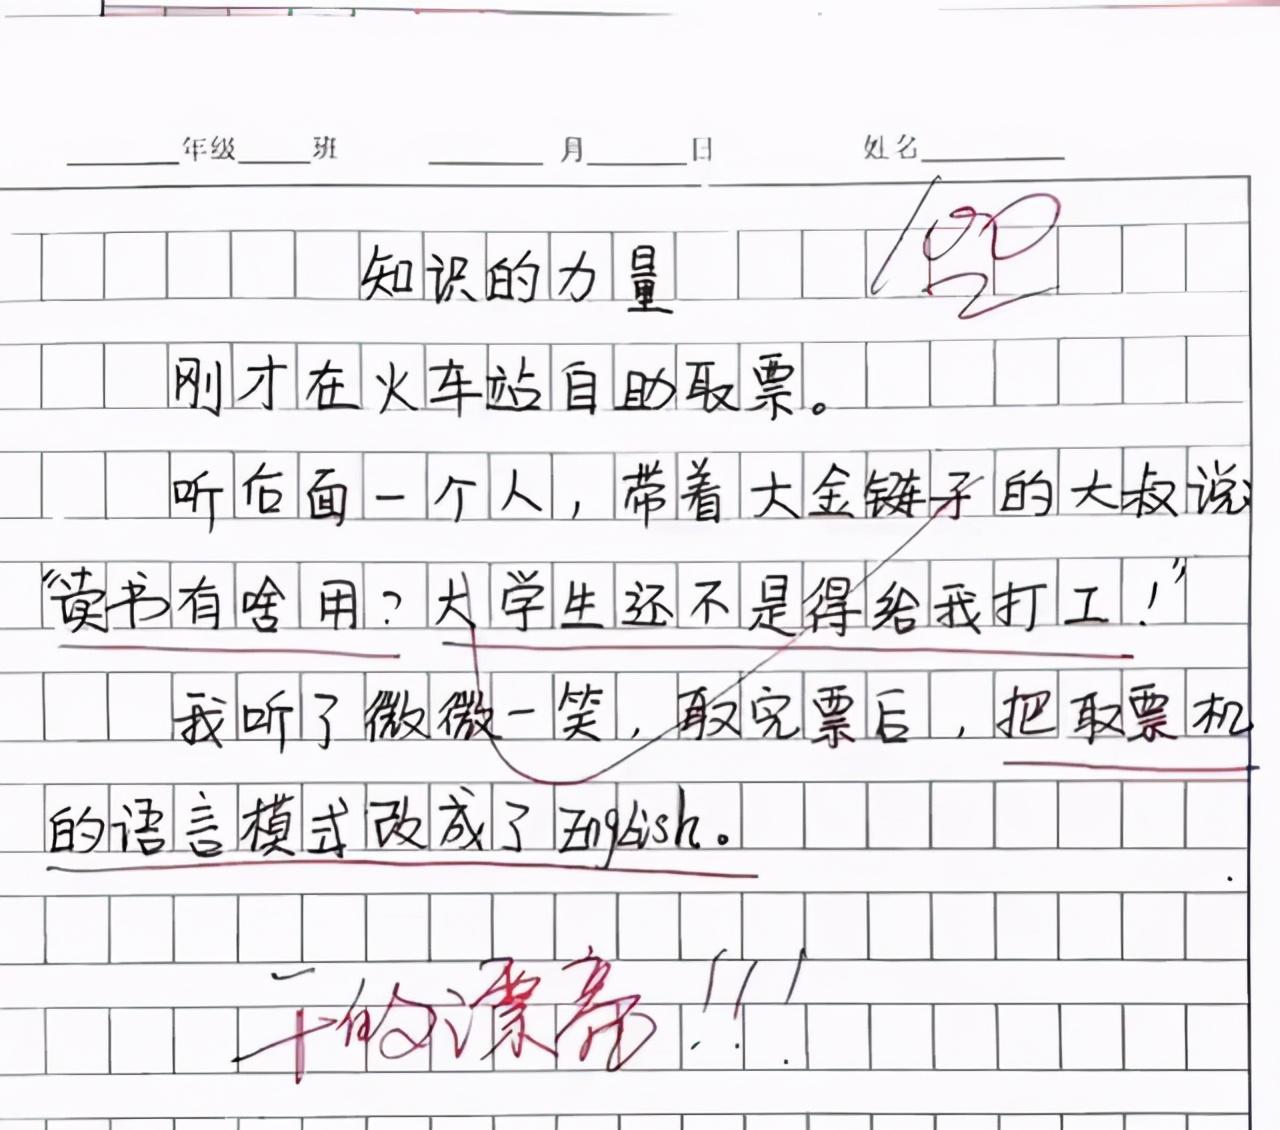 年级 班 月 日 姓名
100
知识的力量
刚才在火车站自助取票。
听后面一个人，带着大金链子的大叔说
“读书有啥用？大学生还不是得给我打工！”
我听了微微一笑，取完票后，把取票机
的语言模式改成了English。
干的漂亮!!!